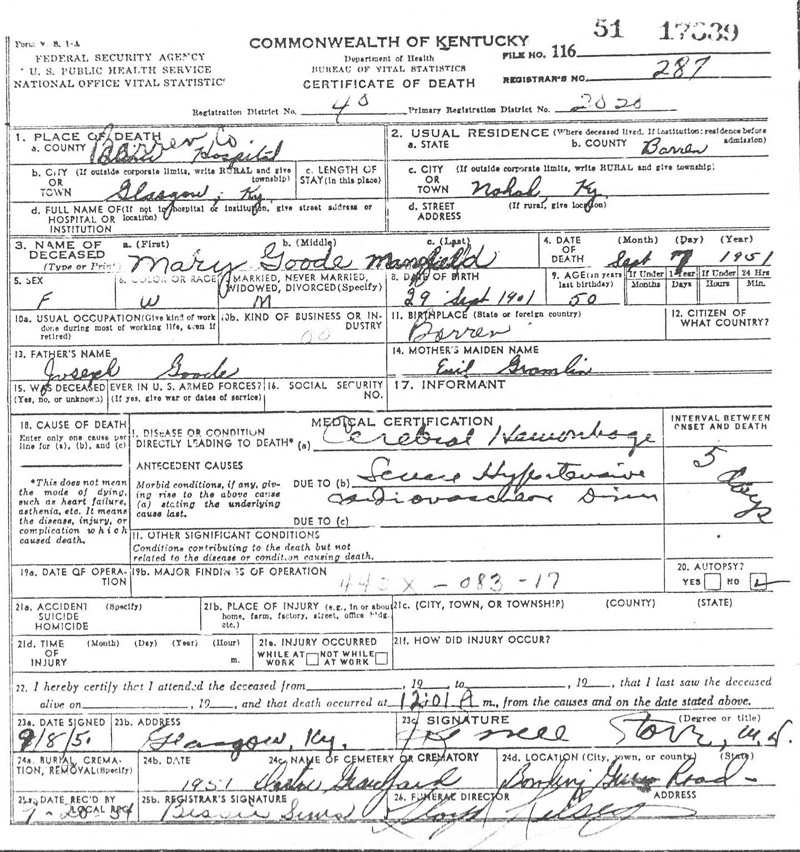 51 17639
Form V. S. 1-A
FEDERAL SECURITY AGENCY
U. S. PUBLIC HEALTH SERVICE
NATIONAL OFFICE VITAL STATISTIC
COMMONWEALTH OF KENTUCKY
Department of Health
BUREAU OF VITAL STATISTICS
CERTIFICATE OF DEATH
FILE NO. 116
REGISTRAR'S NO. 287
Registration District No. 40 Primary Registration District No. 2020
1. PLACE OF DEATH
a. COUNTY Barren Co Hospital
2. USUAL RESIDENCE (Where deceased lived. If institution: residence before admission)
a. STATE b. COUNTY Barren
b. CITY (If outside corporate limits, write RURAL and give township)
OR TOWN Glasgow, Ky
c. LENGTH OF STAY (in this place)
c. CITY (If outside corporate limits, write RURAL and give township)
OR TOWN Ky.
d. FULL NAME OF (If not in hospital or institution, give street address or location)
HOSPITAL OR INSTITUTION
d. STREET ADDRESS (If rural, give location)
3. NAME OF DECEASED (Type or Print)
a. (First) b. (Middle) c. (Last)
Mary Goode Mansfield
4. DATE OF DEATH (Month) (Day) (Year)
Sept 7 1951
5. SEX F
6. COLOR OR RACE W
7. MARRIED, NEVER MARRIED, WIDOWED, DIVORCED (Specify) M
8. DATE OF BIRTH 29 Sept 1901
9. AGE (in years last birthday) 50
If Under 1 Year Months Days
If Under 24 Hrs Hours Min.
10a. USUAL OCCUPATION (Give kind of work done during most of working life, even if retired)
10b. KIND OF BUSINESS OR INDUSTRY 00
11. BIRTHPLACE (State or foreign country) Barren
12. CITIZEN OF WHAT COUNTRY?
13. FATHER'S NAME Joseph Goode
14. MOTHER'S MAIDEN NAME Gramlin
15. WAS DECEASED EVER IN U. S. ARMED FORCES? (Yes, no, or unknown) (If yes, give war or dates of service)
16. SOCIAL SECURITY NO.
17. INFORMANT
18. CAUSE OF DEATH
Enter only one cause per line for (a), (b), and (c)
*This does not mean the mode of dying, such as heart failure, asthenia, etc. It means the disease, injury, or complication which caused death.
MEDICAL CERTIFICATION
INTERVAL BETWEEN ONSET AND DEATH
I. DISEASE OR CONDITION DIRECTLY LEADING TO DEATH* (a) Cerebral Hemorrhage
5 days
ANTECEDENT CAUSES
Morbid conditions, if any, giving rise to the above cause (a) stating the underlying cause last.
DUE TO (b) Severe Hypertensive
DUE TO (c)
II. OTHER SIGNIFICANT CONDITIONS
Conditions contributing to the death but not related to the disease or condition causing death.
19a. DATE OF OPERATION
19b. MAJOR FINDINGS OF OPERATION
443X - 083 - 17
20. AUTOPSY?
YES NO
21a. ACCIDENT SUICIDE HOMICIDE (Specify)
21b. PLACE OF INJURY (e.g., in or about home, farm, factory, street, office bldg. etc.)
21c. (CITY, TOWN, OR TOWNSHIP) (COUNTY) (STATE)
21d. TIME OF INJURY (Month) (Day) (Year) (Hour) m.
21e. INJURY OCCURRED
WHILE AT WORK NOT WHILE AT WORK
21f. HOW DID INJURY OCCUR?
22. I hereby certify that I attended the deceased from , 19 to , 19 , that I last saw the deceased
alive on , 19 , and that death occurred at 12:01A m., from the causes and on the date stated above.
23a. DATE SIGNED 9/8/51
23b. ADDRESS Glasgow, Ky.
23c. SIGNATURE (Degree or title) M.D.
24a. BURIAL, CREMATION, REMOVAL (Specify)
24b. DATE 1951
24c. NAME OF CEMETERY OR CREMATORY Graveyard
24d. LOCATION (City, town, or county) (State) Bowling Green Road
25a. DATE REC'D BY LOCAL REG.
25b. REGISTRAR'S SIGNATURE Bessie
26. FUNERAL DIRECTOR ADDRESS Kelsey